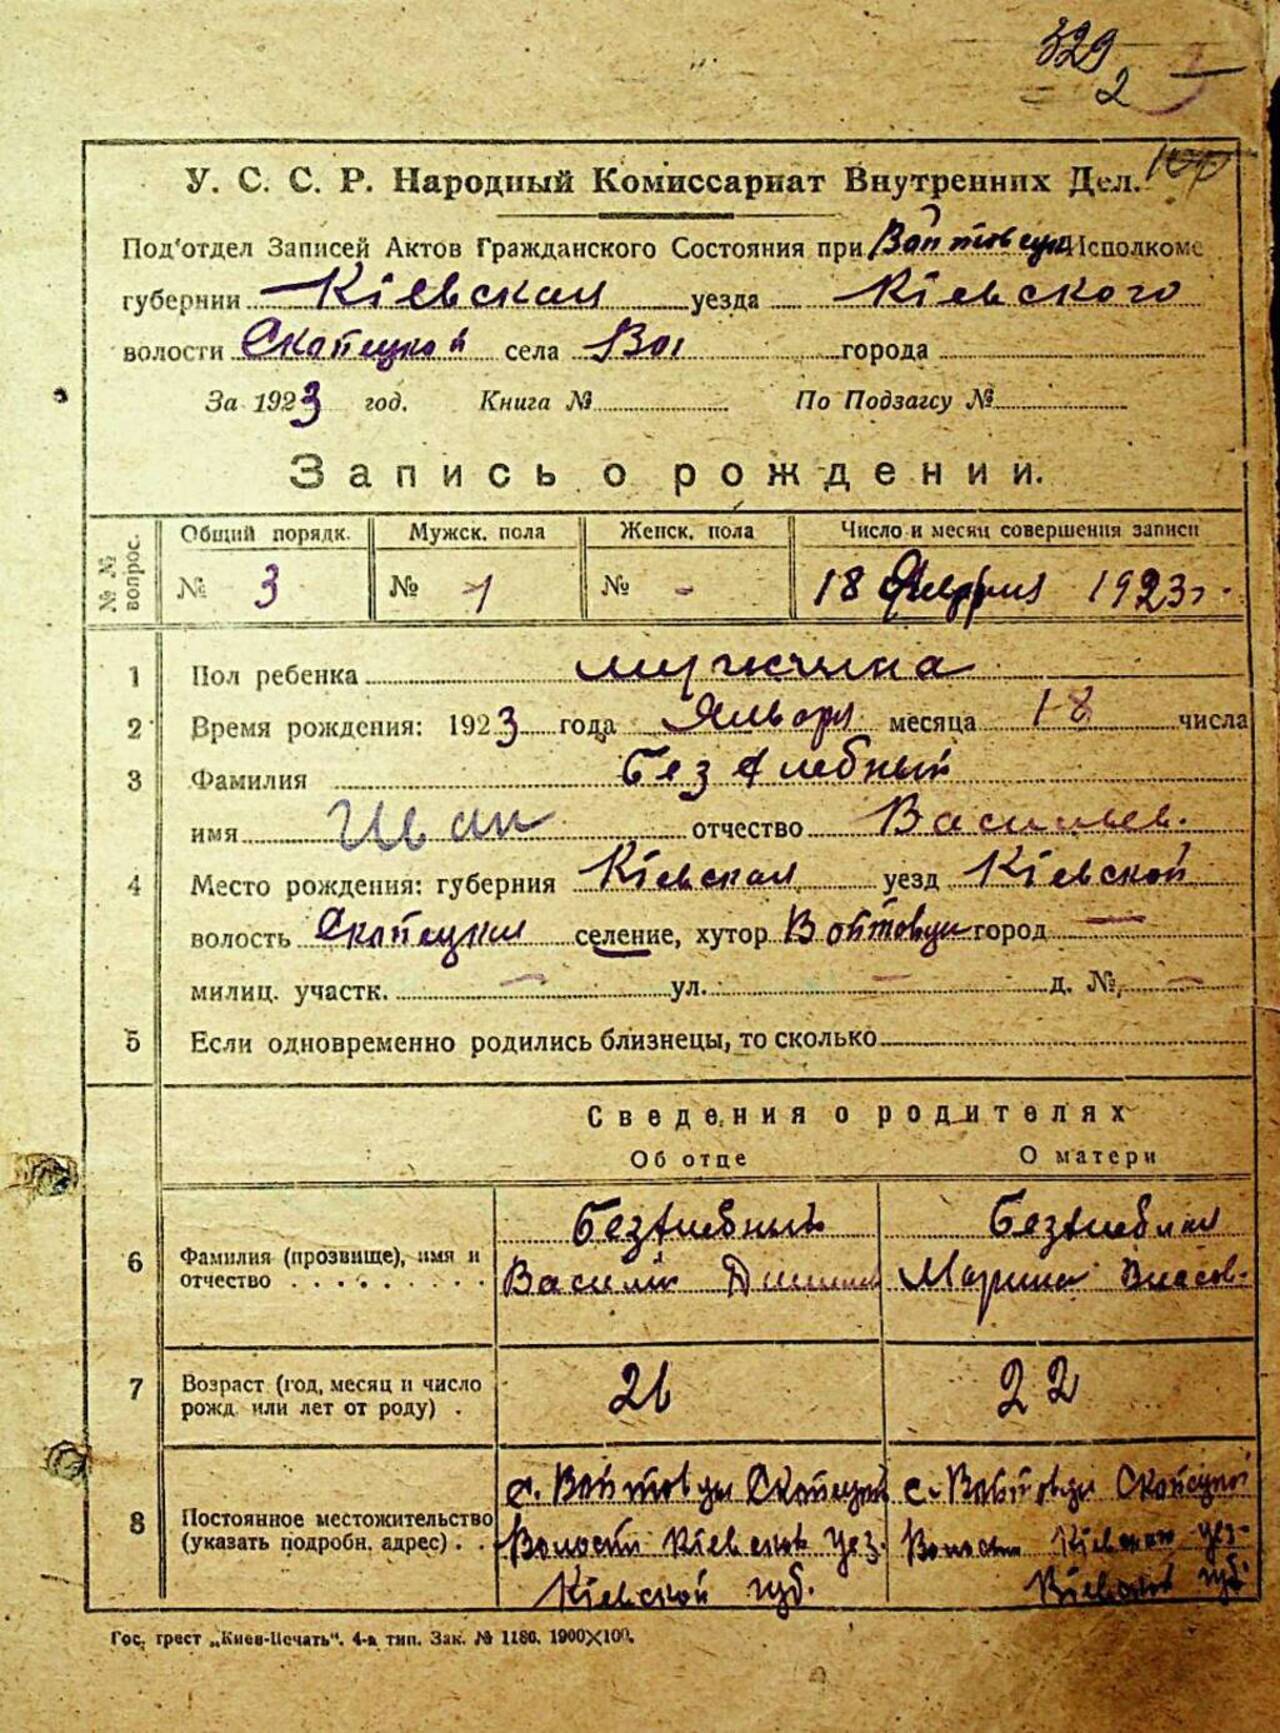 329
2
100
У. С. С. Р. Народный Комиссариат Внутренних Дел.
Под'отдел Записей Актов Гражданского Состояния при Войтовцы Исполкоме
губернии Кіевская уезда Кіевского
волости Скопецкой села Вой города
За 1923 год. Книга № По Подзагсу №
Запись о рождении.
№ № вопрос. Общий порядк. Мужск. пола Женск. пола Число и месяц совершения записи
№ 3 № 1 № - 18 1923 г.
1 Пол ребенка мужчина
2 Время рождения: 1923 года Января месяца 18 числа
3 Фамилия Безхлебный
имя Иван отчество Васильев.
4 Место рождения: губерния Кіевская уезд Кіевской
волость Скопецкая селение, хутор Войтовцы город —
милиц. участк. — ул. — д. №. —
5 Если одновременно родились близнецы, то сколько
Сведения о родителях
Об отце О матери
6 Фамилия (прозвище), имя и отчество . . . . . . . . .
Безхлебный
Василій
Безхлебная
Марина Власов.
7 Возраст (год, месяц и число рожд. или лет от роду) .
26
22
8 Постоянное местожительство (указать подробн. адрес) . .
с. Войтовцы Скопецкой
Волости Кіевской уез.
Кіевской губ.
с. Войтовцы Скопецкой
Волости Кіевской уез.
Кіевской губ.
Гос. трест „Киев-Печать". 4-я тип. Зак. № 1186. 1900×100.